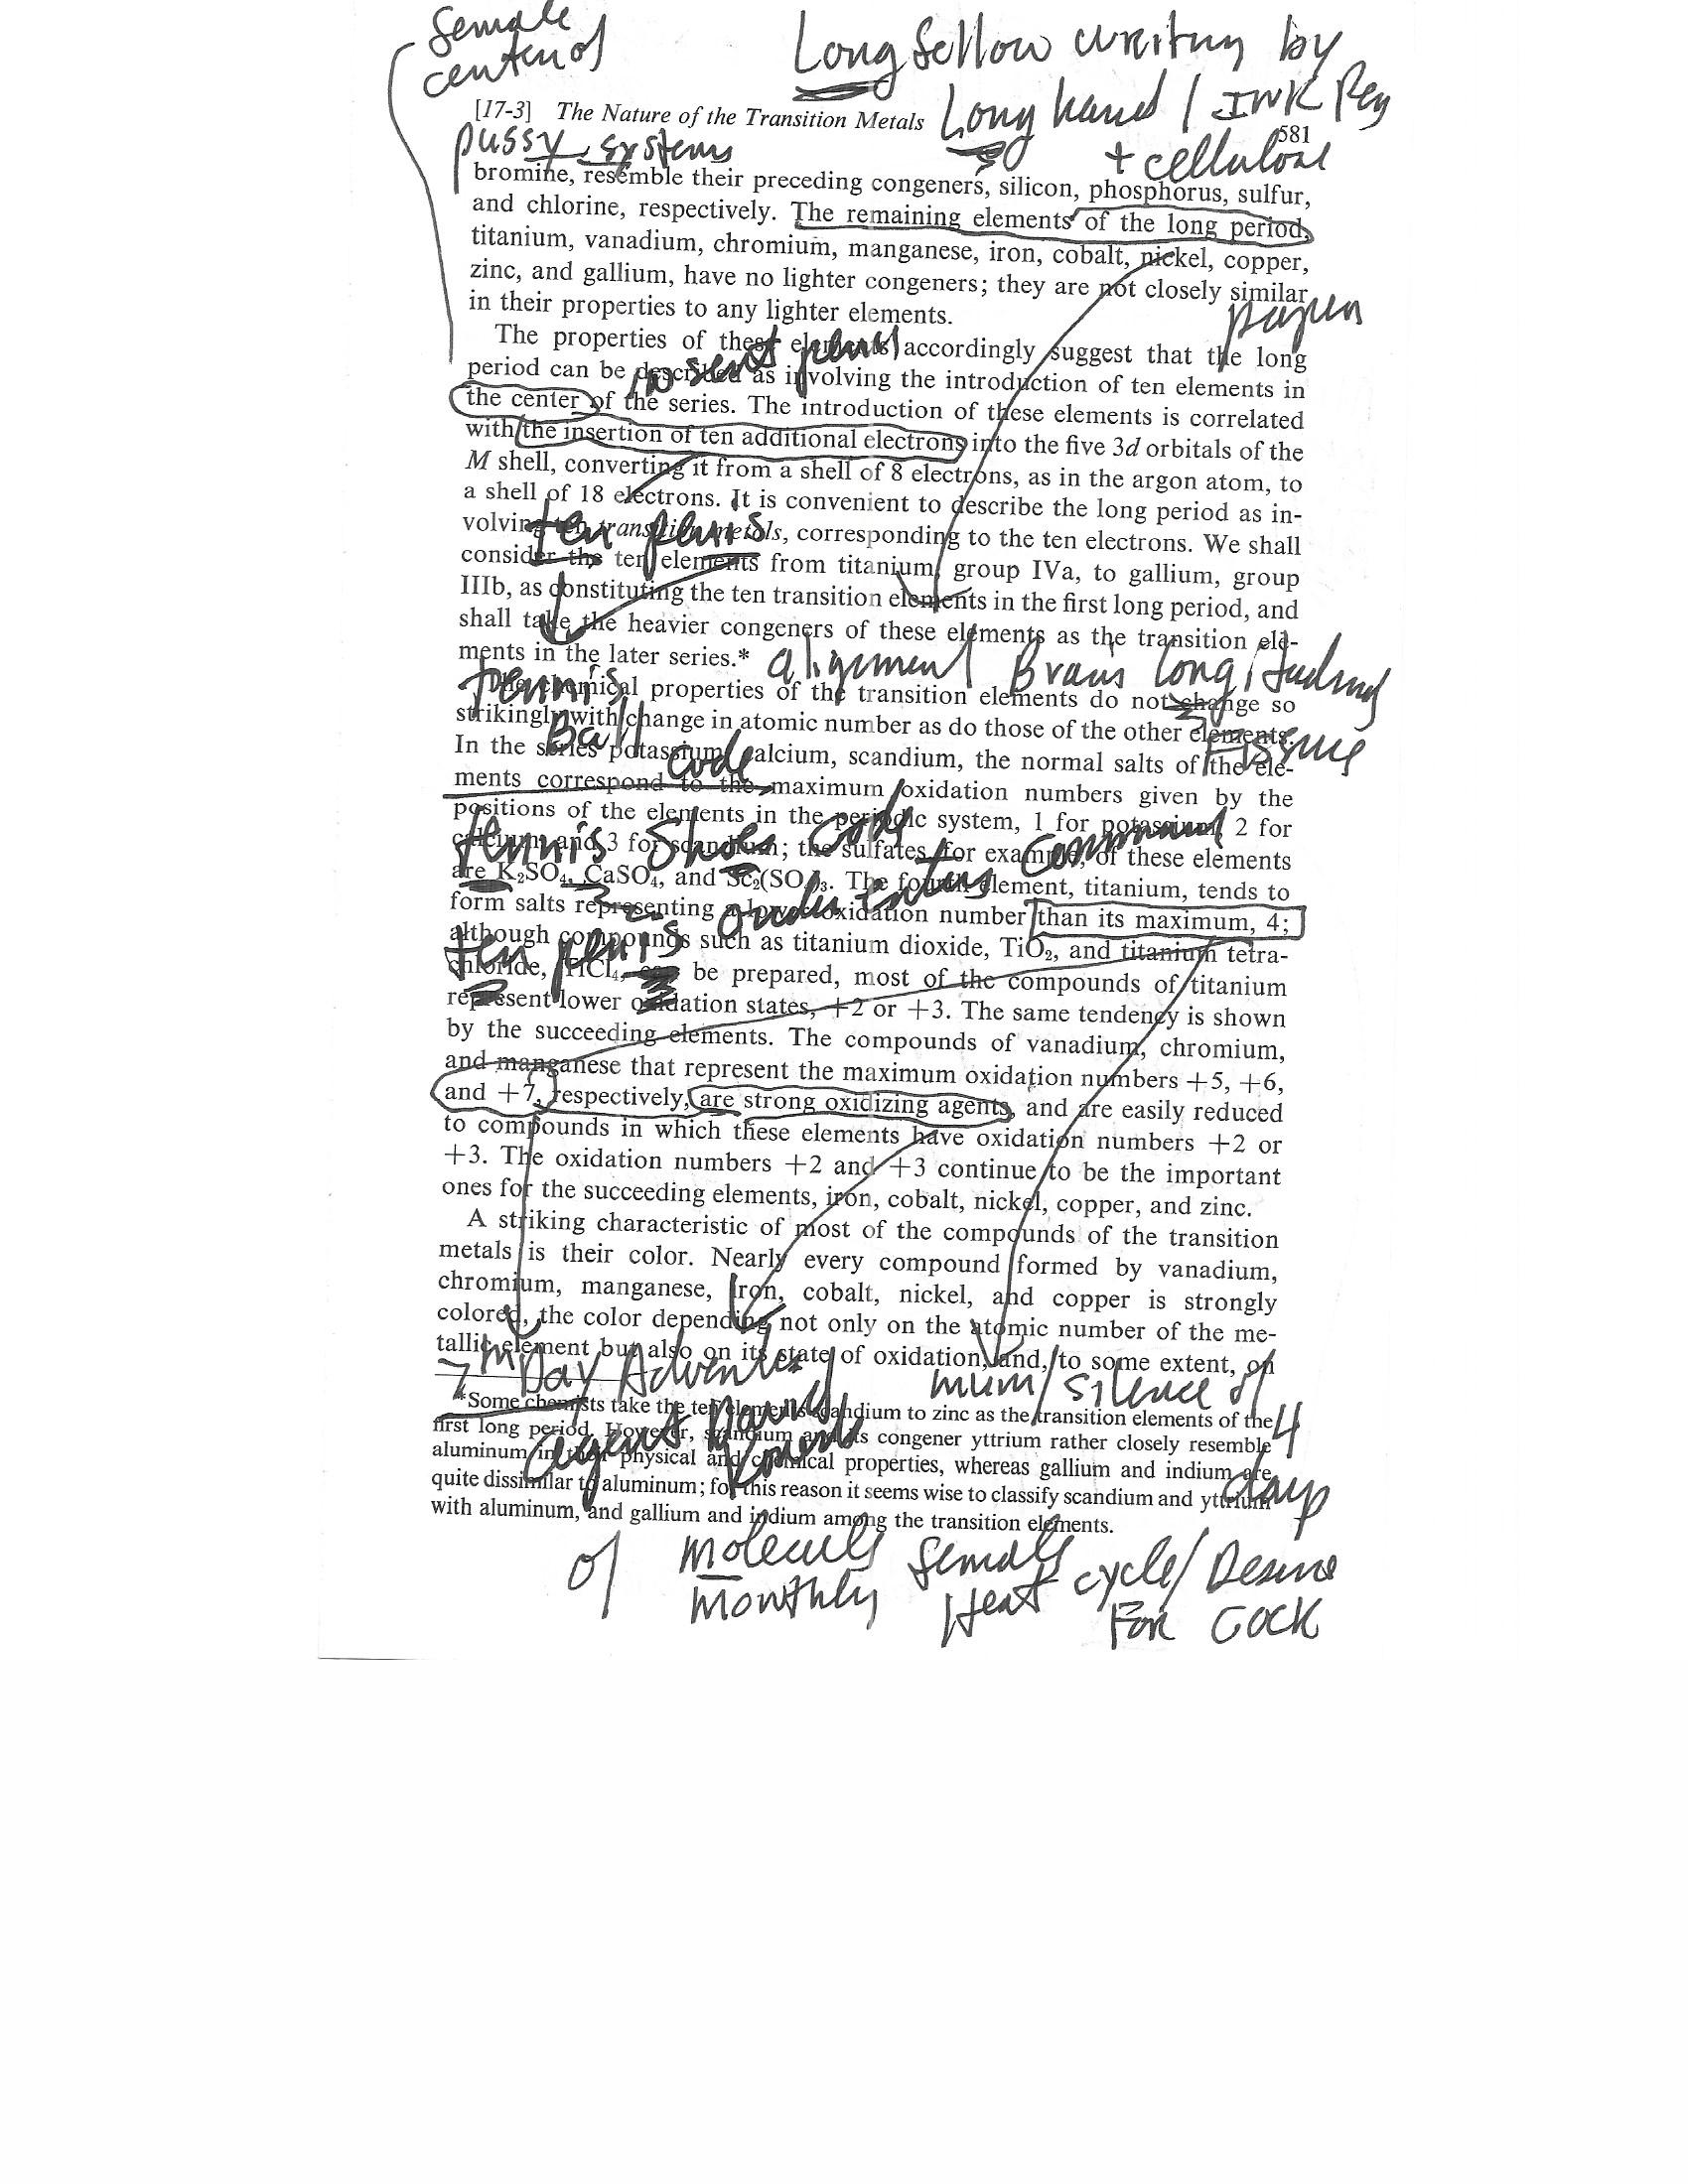 female
center of
Long fellow writing by
Long hand / INK Pen
+ cellulose
[17-3] The Nature of the Transition Metals
581
pussy systems
bromine, resemble their preceding congeners, silicon, phosphorus, sulfur,
and chlorine, respectively. The remaining elements of the long period,
titanium, vanadium, chromium, manganese, iron, cobalt, nickel, copper,
zinc, and gallium, have no lighter congeners; they are not closely similar
in their properties to any lighter elements.
paper
The properties of these elements accordingly suggest that the long
insert penis
period can be described as involving the introduction of ten elements in
the center of the series. The introduction of these elements is correlated
with the insertion of ten additional electrons into the five 3d orbitals of the
M shell, converting it from a shell of 8 electrons, as in the argon atom, to
a shell of 18 electrons. It is convenient to describe the long period as in-
ten penis
volving ten transition metals, corresponding to the ten electrons. We shall
consider the ten elements from titanium, group IVa, to gallium, group
IIIb, as constituting the ten transition elements in the first long period, and
shall take the heavier congeners of these elements as the transition ele-
ments in the later series.*
alignment Brain's longitudinal
Fissure
tennis
Ball
code
The chemical properties of the transition elements do not change so
strikingly with change in atomic number as do those of the other elements.
In the series potassium, calcium, scandium, the normal salts of the ele-
ments correspond to the maximum oxidation numbers given by the
positions of the elements in the periodic system, 1 for potassium, 2 for
tennis shoes code
command
calcium, and 3 for scandium; the sulfates, for example, of these elements
are K₂SO₄, CaSO₄, and Sc₂(SO₄)₃. The fourth element, titanium, tends to
form salts representing a lower oxidation number than its maximum, 4;
ten penis
although compounds such as titanium dioxide, TiO₂, and titanium tetra-
chloride, TiCl₄, can be prepared, most of the compounds of titanium
represent lower oxidation states, +2 or +3. The same tendency is shown
by the succeeding elements. The compounds of vanadium, chromium,
and manganese that represent the maximum oxidation numbers +5, +6,
and +7, respectively, are strong oxidizing agents, and are easily reduced
to compounds in which these elements have oxidation numbers +2 or
+3. The oxidation numbers +2 and +3 continue to be the important
ones for the succeeding elements, iron, cobalt, nickel, copper, and zinc.
A striking characteristic of most of the compounds of the transition
metals is their color. Nearly every compound formed by vanadium,
chromium, manganese, iron, cobalt, nickel, and copper is strongly
colored, the color depending not only on the atomic number of the me-
tallic element but also on its state of oxidation, and, to some extent, on
7th Day Adventis
agent David
mum / silence of
4
days
*Some chemists take the ten elements scandium to zinc as the transition elements of the
first long period. However, scandium and its congener yttrium rather closely resemble
aluminum in their physical and chemical properties, whereas gallium and indium are
quite dissimilar to aluminum; for this reason it seems wise to classify scandium and yttrium
with aluminum, and gallium and indium among the transition elements.
of molecule female cycle / Desire
monthly Heat For Cock